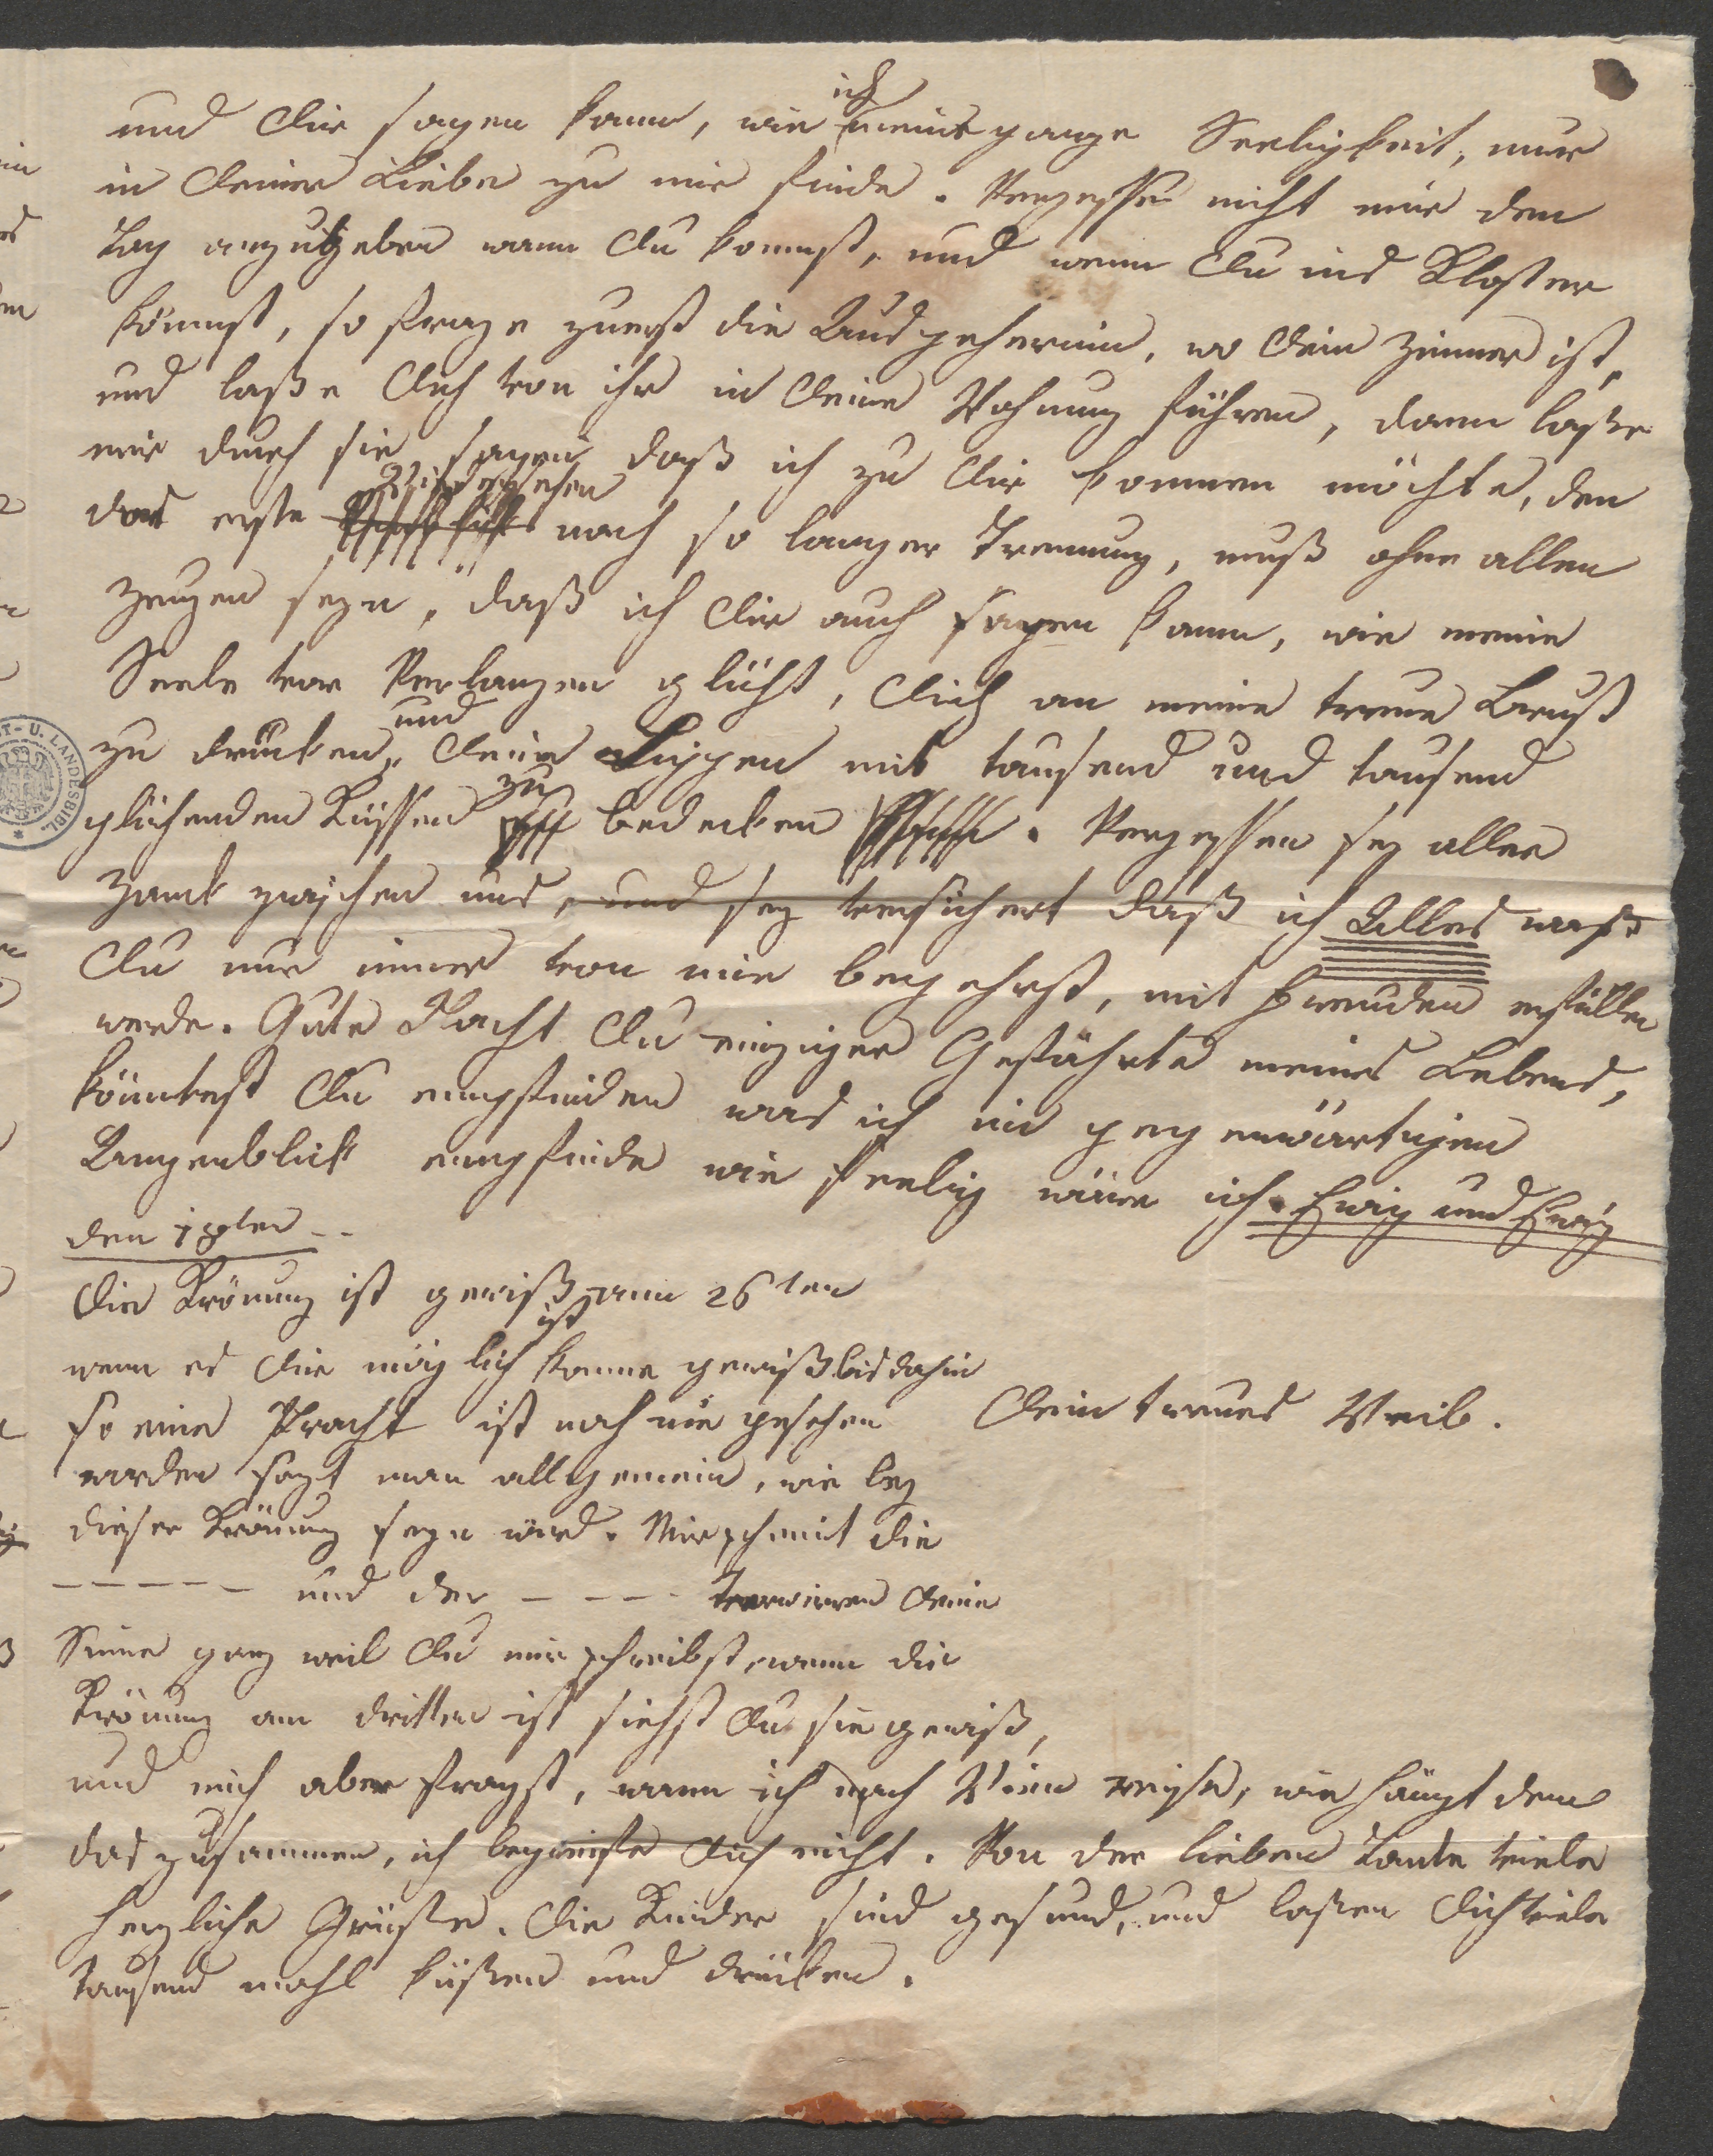 und Dir sagen kann, wie ich meine ganze Seeligkeit, nur
in Deiner Liebe zu mir finde. Vergesse nicht mir den
Tag anzugeben wann Du kommst, und wenn Du ins Kloster
kömmst, so frage zuerst die Ausgeherinn, wo Dein Zimmer ist,
und laße Dich von ihr in Deine Wohnung führen, dann laße
mir durch sie sagen daß ich zu Dir kommen möchte, den
das erste Wiedersehen nach so langer Trennung, muß ohne allen
Zeugen seyn, daß ich Dir auch sagen kann, wie meine
Seele vor Verlangen glüht, Dich an meine treue Brust
zu drücken, und Deine Lippen mit tausend und tausend
glühenden Küssen zu bedecken. Vergessen sey aller
Zank zwischen uns, und sey versichert daß ich Alles waß
Du nur immer von mir begehrst, mit Freuden erfüllen
werde. Gute Nacht Du einziger Gefährte meines Lebens,
könntest Du empfinden was ich im gegenwärtigen
Augenblick empfinde wie seelig wäre ich. Ewig und Ewig
den 18ten --
Die Krönung ist gewiß am 26ten
wenn es Dir möglich ist komme gewiß bis dahin
so eine Pracht ist noch nie gesehen
Dein treues Weib.
worden sagt man allgemein, wie bey
dieser Krönung seyn wird. Mir scheint die
----- und der ---- verwirren Deine
Sinne ganz weil Du mir schreibst, wenn die
Krönung am dritten ist siehst Du sie gewiß,
und mich aber fragst, wann ich nach Wien reise, wie hängt denn
das zusammen, ich begreife Dich nicht. Von der lieben Tante viele
herzliche Grüße. Die Kinder sind gesund, und laßen Dich viele
tausend mahl küßen und drücken.